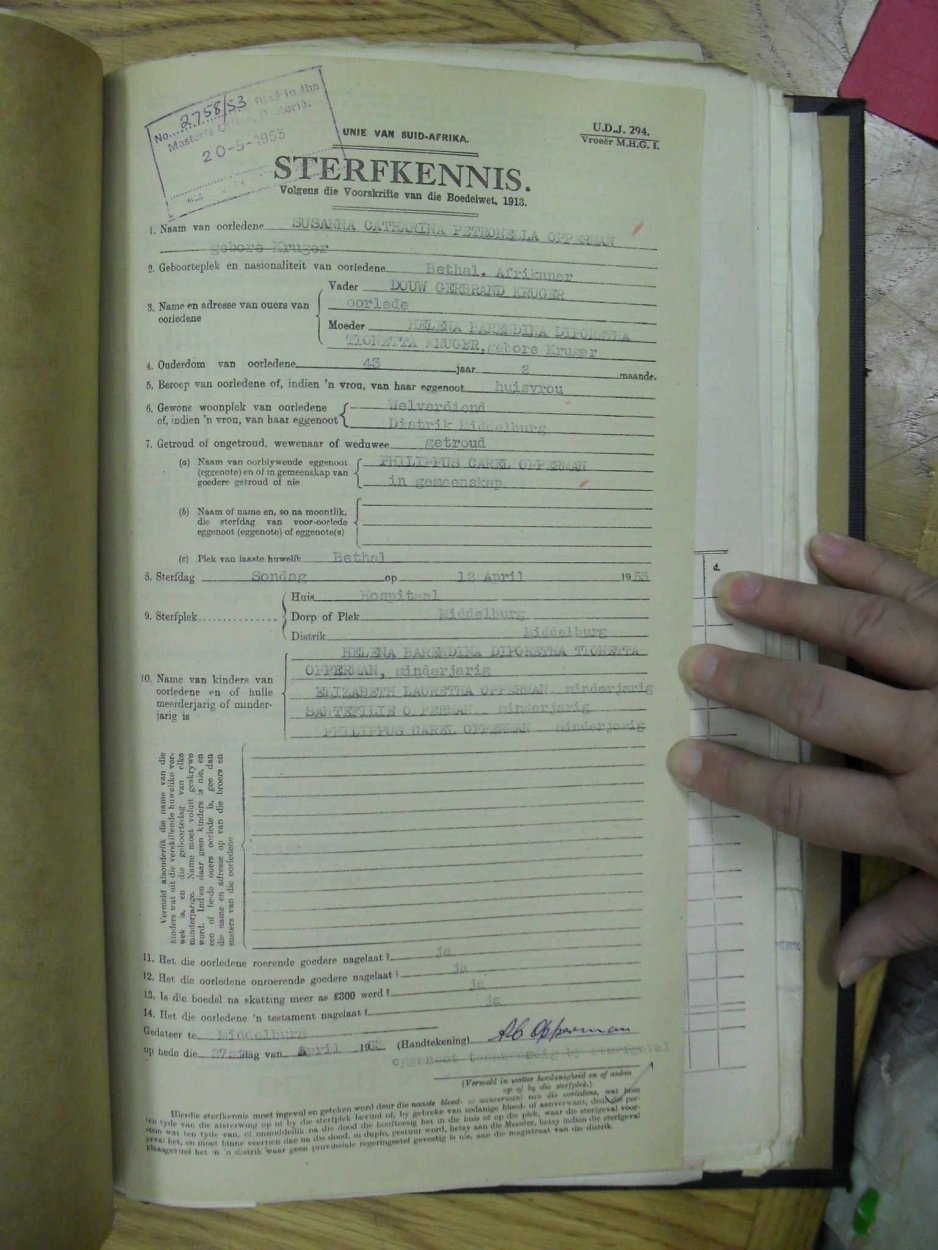 No. 2758/53 in the
Master's Office,
20-5-1953
UNIE VAN SUID-AFRIKA.
U.D.J. 294.
Vroeër M.H.G. 1.
STERFKENNIS.
Volgens die Voorskrifte van die Boedelwet, 1913.
1. Naam van oorledene SUSANNA CATHARINA PETRONELLA OPPERMAN
gebore Kruger
2. Geboorteplek en nasionaliteit van oorledene Bethal. Afrikaner
3. Name en adresse van ouers van oorledene
Vader DOUW GERBRAND KRUGER
oorlede
Moeder HELENA BARENDINA DIPORETHA
TIONETTA KRUGER, gebore Kruger
4. Ouderdom van oorledene 43 jaar 2 maande.
5. Beroep van oorledene of, indien 'n vrou, van haar eggenoot huisvrou
6. Gewone woonplek van oorledene Welverdiend
of, indien 'n vrou, van haar eggenoot Distrik Middelburg
7. Getroud of ongetroud, wewenaar of weduwee getroud
(a) Naam van oorblywende eggenoot PHILIPPUS CAREL OPPERMAN
(eggenote) en of in gemeenskap van
goedere getroud of nie in gemeenskap
(b) Naam of name en, so na moontlik,
die sterfdag van voor-oorlede
eggenoot (eggenote) of eggenote(s)
(c) Plek van laaste huwelik Bethal
8. Sterfdag Sondag op 12 April 1953
9. Sterfplek
Huis Hospitaal
Dorp of Plek Middelburg
Distrik Middelburg
10. Name van kinders van
oorledene en of hulle
meerderjarig of minder-
jarig is
HELENA BARENDINA DIPORETHA TIONETTA
OPPERMAN, minderjarig
ELIZABETH LAURETHA OPPERMAN minderjarig
OPPERMAN minderjarig
PHILIPPUS CAREL OPPERMAN minderjarig
Vermeld afsonderlik die name van die
kinders wat uit die verskillende huwelike ver-
wek is, en die geboortedag van elke
minderjarige. Name moet voluit geskrywe
word. Indien daar geen kinders is nie, en
een of beide ouers oorlede is, gee dan
die name en adresse op van die broers en
susters van die oorledene
11. Het die oorledene roerende goedere nagelaat? ja
12. Het die oorledene onroerende goedere nagelaat? ja
13. Is die boedel na skatting meer as £300 werd? ja
14. Het die oorledene 'n testament nagelaat? ja
Gedateer te Middelburg
(Handtekening) Opperman
op hede die dag van April
eggenoot by sterfgeval
(Vermeld in watter hoedanigheid en of anders
op of by die sterfplek.)
Hierdie sterfkennis moet ingevul en geteken word deur die naaste bloed- of aanverwant van die oorledene, wat
ten tyde van die afsterwing op of by die sterfplek bevind of, by gebreke van sodanige bloed- of aanverwant, deur die per-
soon wat ten tyde van, of onmiddellik na die dood die hooftoesig het in die huis of op die plek, waar die sterfgeval voor-
geval het, en moet binne veertien dae na die dood, in duplo, gestuur word, hetsy aan die Meester, hetsy indien die sterfgeval
plaasgevind het in 'n distrik waar geen provinsiale regeringsetel gevestig is nie, aan die magistraat van die distrik.
d.